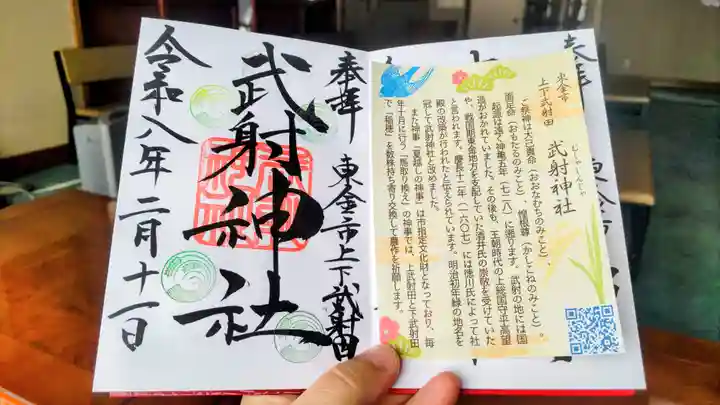 奉拝
東金市上下武射田
武射神社
令和八年二月十一日
東金市
上下武射田
武射神社
むしゃじんじゃ
ご祭神は大己貴命(おおなむちのみこと)、
面足命(おもたるのみこと)、惶根尊(かしこねのみこと)。
起源は遠く神亀五年(七二八)に遡ります。武射の地には国
造がおかれていました。その後も、王朝時代の上総国守平高望
や、戦国期東金地方を支配していた酒井氏の崇敬を受けていた
と言われます。慶長十二年(一六〇七)には徳川氏によって社
殿の改築が行われたと伝えられています。明治初年縁の地名を
冠して武射神社と改めました。
また神事「夏越しの神事」は市指定文化財となっており、毎
年十月に行う「馬取り換え」の神事では、上武射田と下武射田
で「稲穂」を数株持ち寄り交換して豊作を祈願します。
奉拝